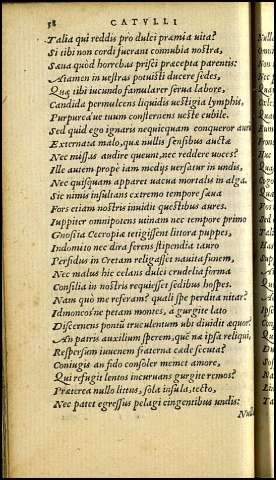 58 CATVLLI
Talia qui reddis pro dulci præmia vita?
Si tibi non cordi fuerant connubia nostra,
Sæua quòd horrebas prisci præcepta parentis:
Attamen in uestras potuisti ducere sedes,
Quæ tibi iucundo famularer serua labore,
Candida permulcens liquidis uestigia lymphis,
Purpurea'ue tuum consternens ueste cubile.
Sed quid ego ignaris nequicquam conqueror auris
Externata malo, quæ nullis sensibus auctæ
Nec missas audire queunt, nec reddere uoces?
Ille autem prope iam medys uersatur in undis,
Nec quisquam apparet uacua mortalis in alga.
Sic nimis insultans extremo tempore sæua
Fors etiam nostris inuidit questibus aures.
Iuppiter omnipotens utinam nec tempore primo
Gnosia Cecropiæ tetigissent littora puppes,
Indomito nec dira ferens stipendia tauro
Perfidus in Cretam religasset nauita funem,
Nec malus hic celans dulci crudelia forma
Consilia in nostris requiesset sedibus hospes.
Nam quò me referam? quali spe perdita nitar?
Idmoneos'ne petam montes, a gurgite lato
Discernens pontū truculentum ubi diuidit æquor?
An patris auxilium sperem, quē'na ipsa reliqui,
Respersum iuuenem fraterna cæde secuta?
Coniugis an fido consoler memet amore,
Qui refugit lentos incuruans gurgite remos?
Præterea nullo littus, sola insula, tecto,
Nec patet egressus pelagi cingentibus undis:
Nulla